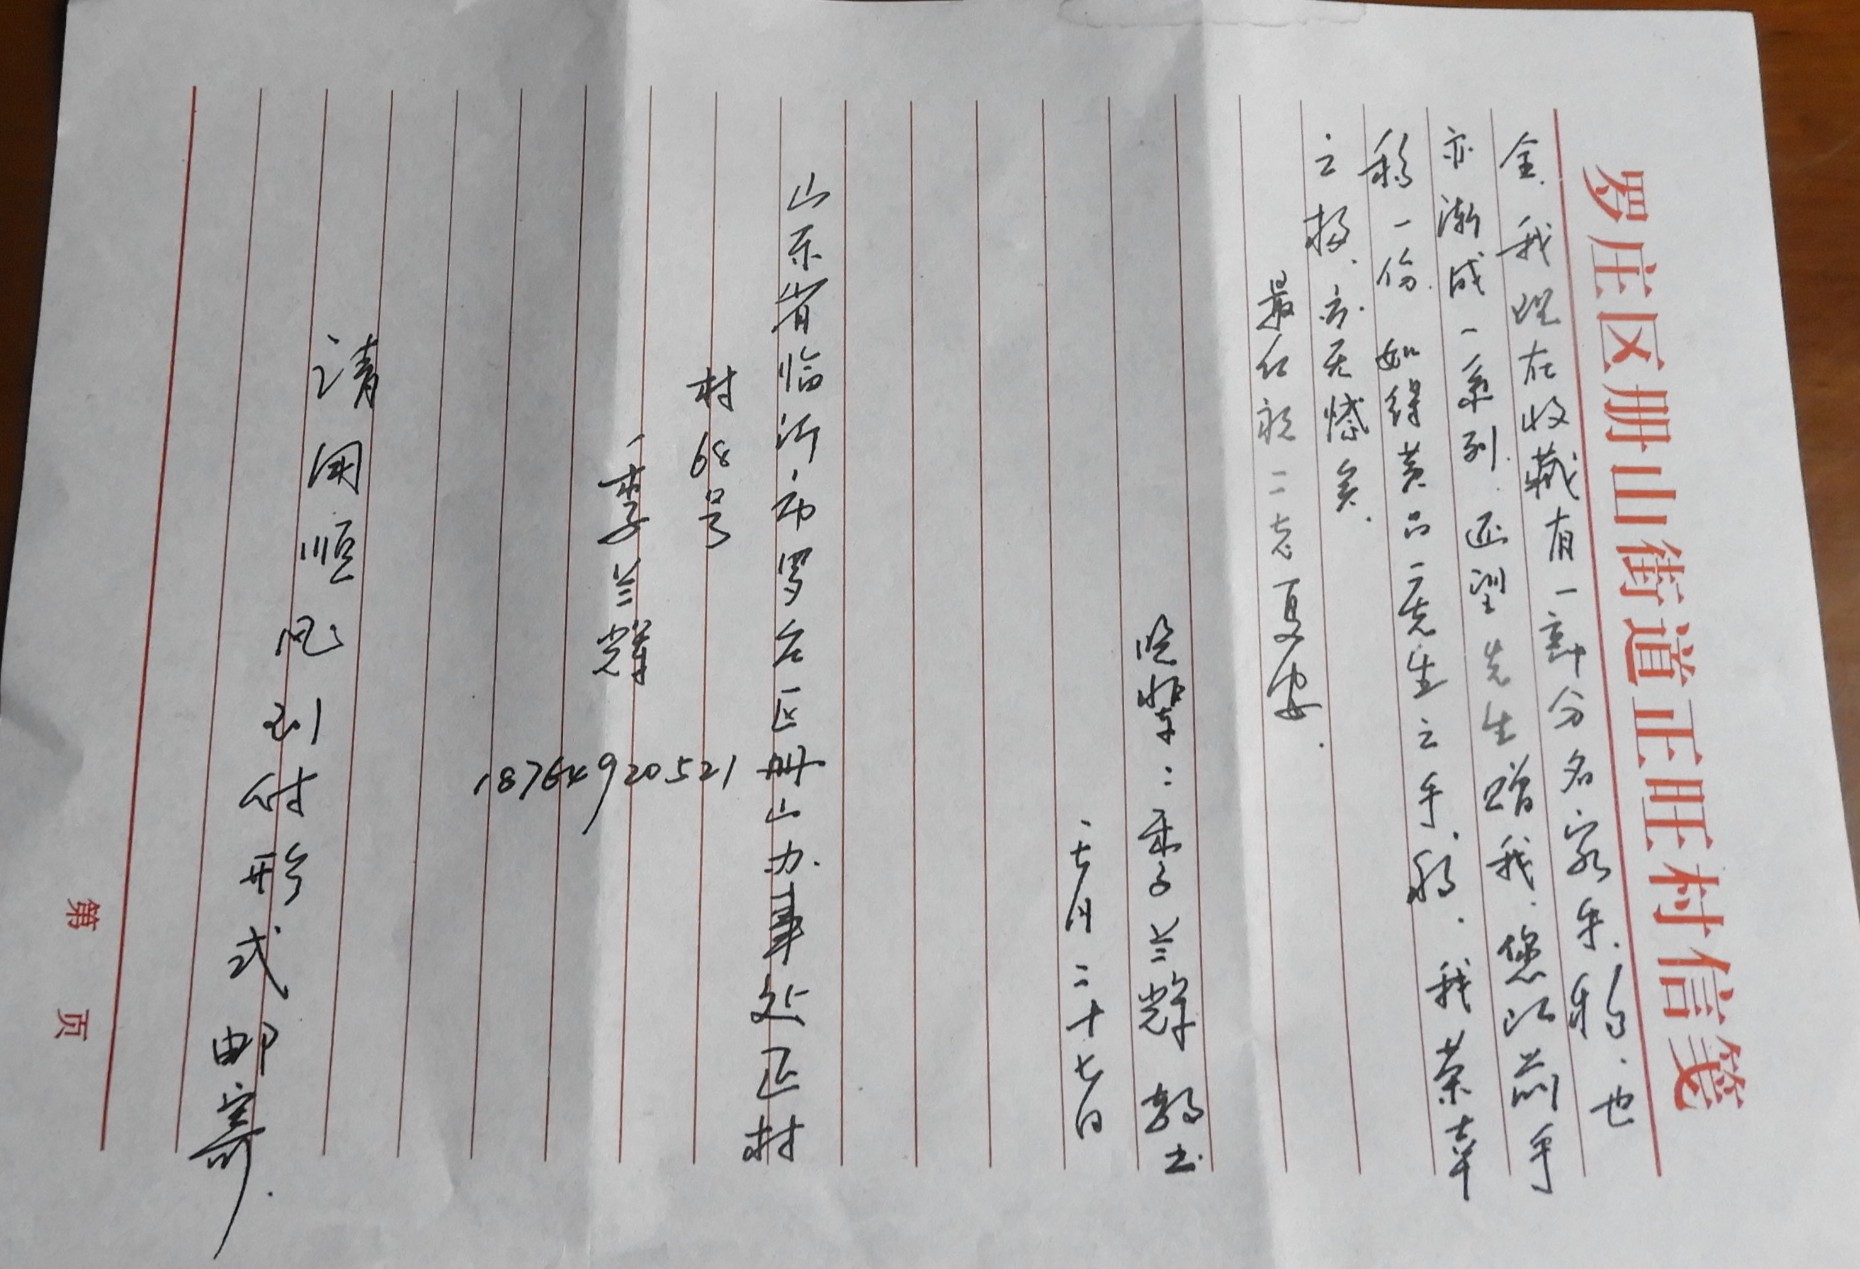 罗庄区册山街道正旺村信笺
全。我现在收藏有一部分名家手稿。也
亦渐成一系列。还望先生赠我。您以前手
稿一份。如得黄品一先生之手稿。我荣幸
之极。亦无憾矣。
最后祝二老夏安。
晚辈：李兰辉 敬书
七月二十七日
山东省临沂市罗庄区册山办事处匹村
村68号
李兰辉
18764920521
请用顺风到付形式邮寄.
第 页